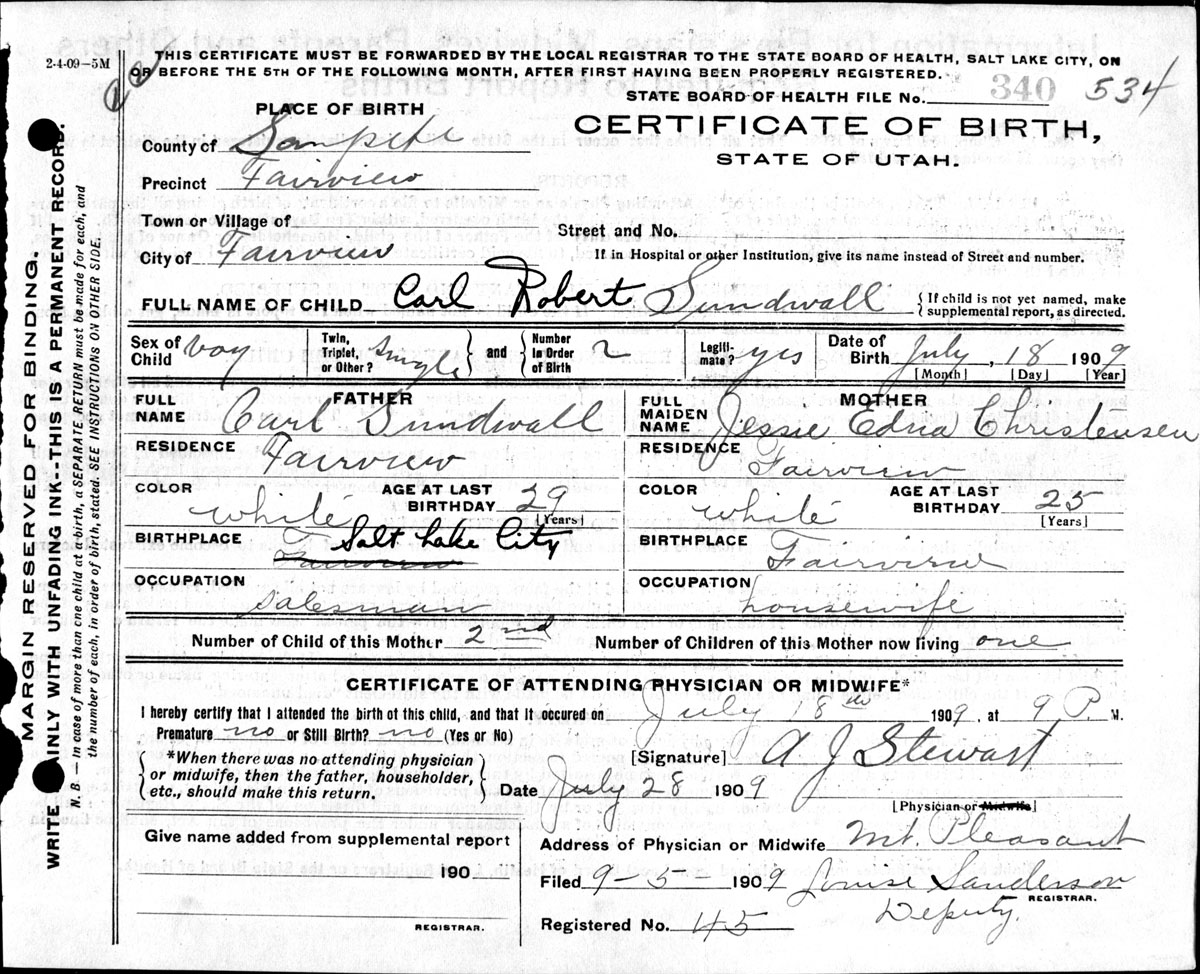 2-4-09-5M
THIS CERTIFICATE MUST BE FORWARDED BY THE LOCAL REGISTRAR TO THE STATE BOARD OF HEALTH, SALT LAKE CITY, ON
OR BEFORE THE 5TH OF THE FOLLOWING MONTH, AFTER FIRST HAVING BEEN PROPERLY REGISTERED.
340 534
STATE BOARD OF HEALTH FILE No.
PLACE OF BIRTH
CERTIFICATE OF BIRTH,
STATE OF UTAH.
County of Sanpete
Precinct Fairview
Town or Village of
Street and No.
City of Fairview
If in Hospital or other Institution, give its name instead of Street and number.
FULL NAME OF CHILD Carl Robert Sundwall { If child is not yet named, make supplemental report, as directed.
Sex of Child boy Twin, Triplet, or Other? Single and Number in Order of Birth 2 Legiti- mate? yes Date of Birth July, 18 1909
[Month] [Day] [Year]
FATHER
FULL NAME Carl Sundwall
MOTHER
FULL MAIDEN NAME Jessie Edna Christensen
RESIDENCE Fairview
RESIDENCE Fairview
COLOR white AGE AT LAST BIRTHDAY 29 [Years]
COLOR white AGE AT LAST BIRTHDAY 25 [Years]
BIRTHPLACE Salt Lake City
Fairview
BIRTHPLACE Fairview
OCCUPATION salesman
OCCUPATION housewife
Number of Child of this Mother 2nd Number of Children of this Mother now living one
CERTIFICATE OF ATTENDING PHYSICIAN OR MIDWIFE*
I hereby certify that I attended the birth of this child, and that it occured on July 18th 1909, at 9 P. M.
Premature no or Still Birth? no (Yes or No)
*When there was no attending physician
or midwife, then the father, householder,
etc., should make this return.
[Signature] A J Stewart
Date July 28 1909
[Physician or Midwife]
Give name added from supplemental report
190
REGISTRAR.
Address of Physician or Midwife Mt. Pleasant
Filed 9-5- 1909 Louise Sanderson
Deputy. REGISTRAR.
Registered No. 45
MARGIN RESERVED FOR BINDING.
WRITE AINLY WITH UNFADING INK--THIS IS A PERMANENT RECORD.
N. B. — In case of more than one child at a birth, a SEPARATE RETURN must be made for each, and
the number of each, in order of birth, stated. SEE INSTRUCTIONS ON OTHER SIDE.